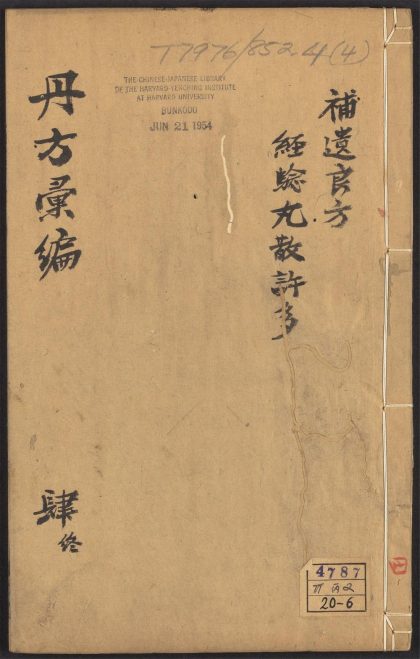 T7976/8524(4)
THE CHINESE-JAPANESE LIBRARY
OF THE HARVARD-YENCHING INSTITUTE
AT HARVARD UNIVERSITY
BUNKODO
JUN 21 1954
補遺良方
經驗丸散許多
丹方彙編
肆終
4787
20-6